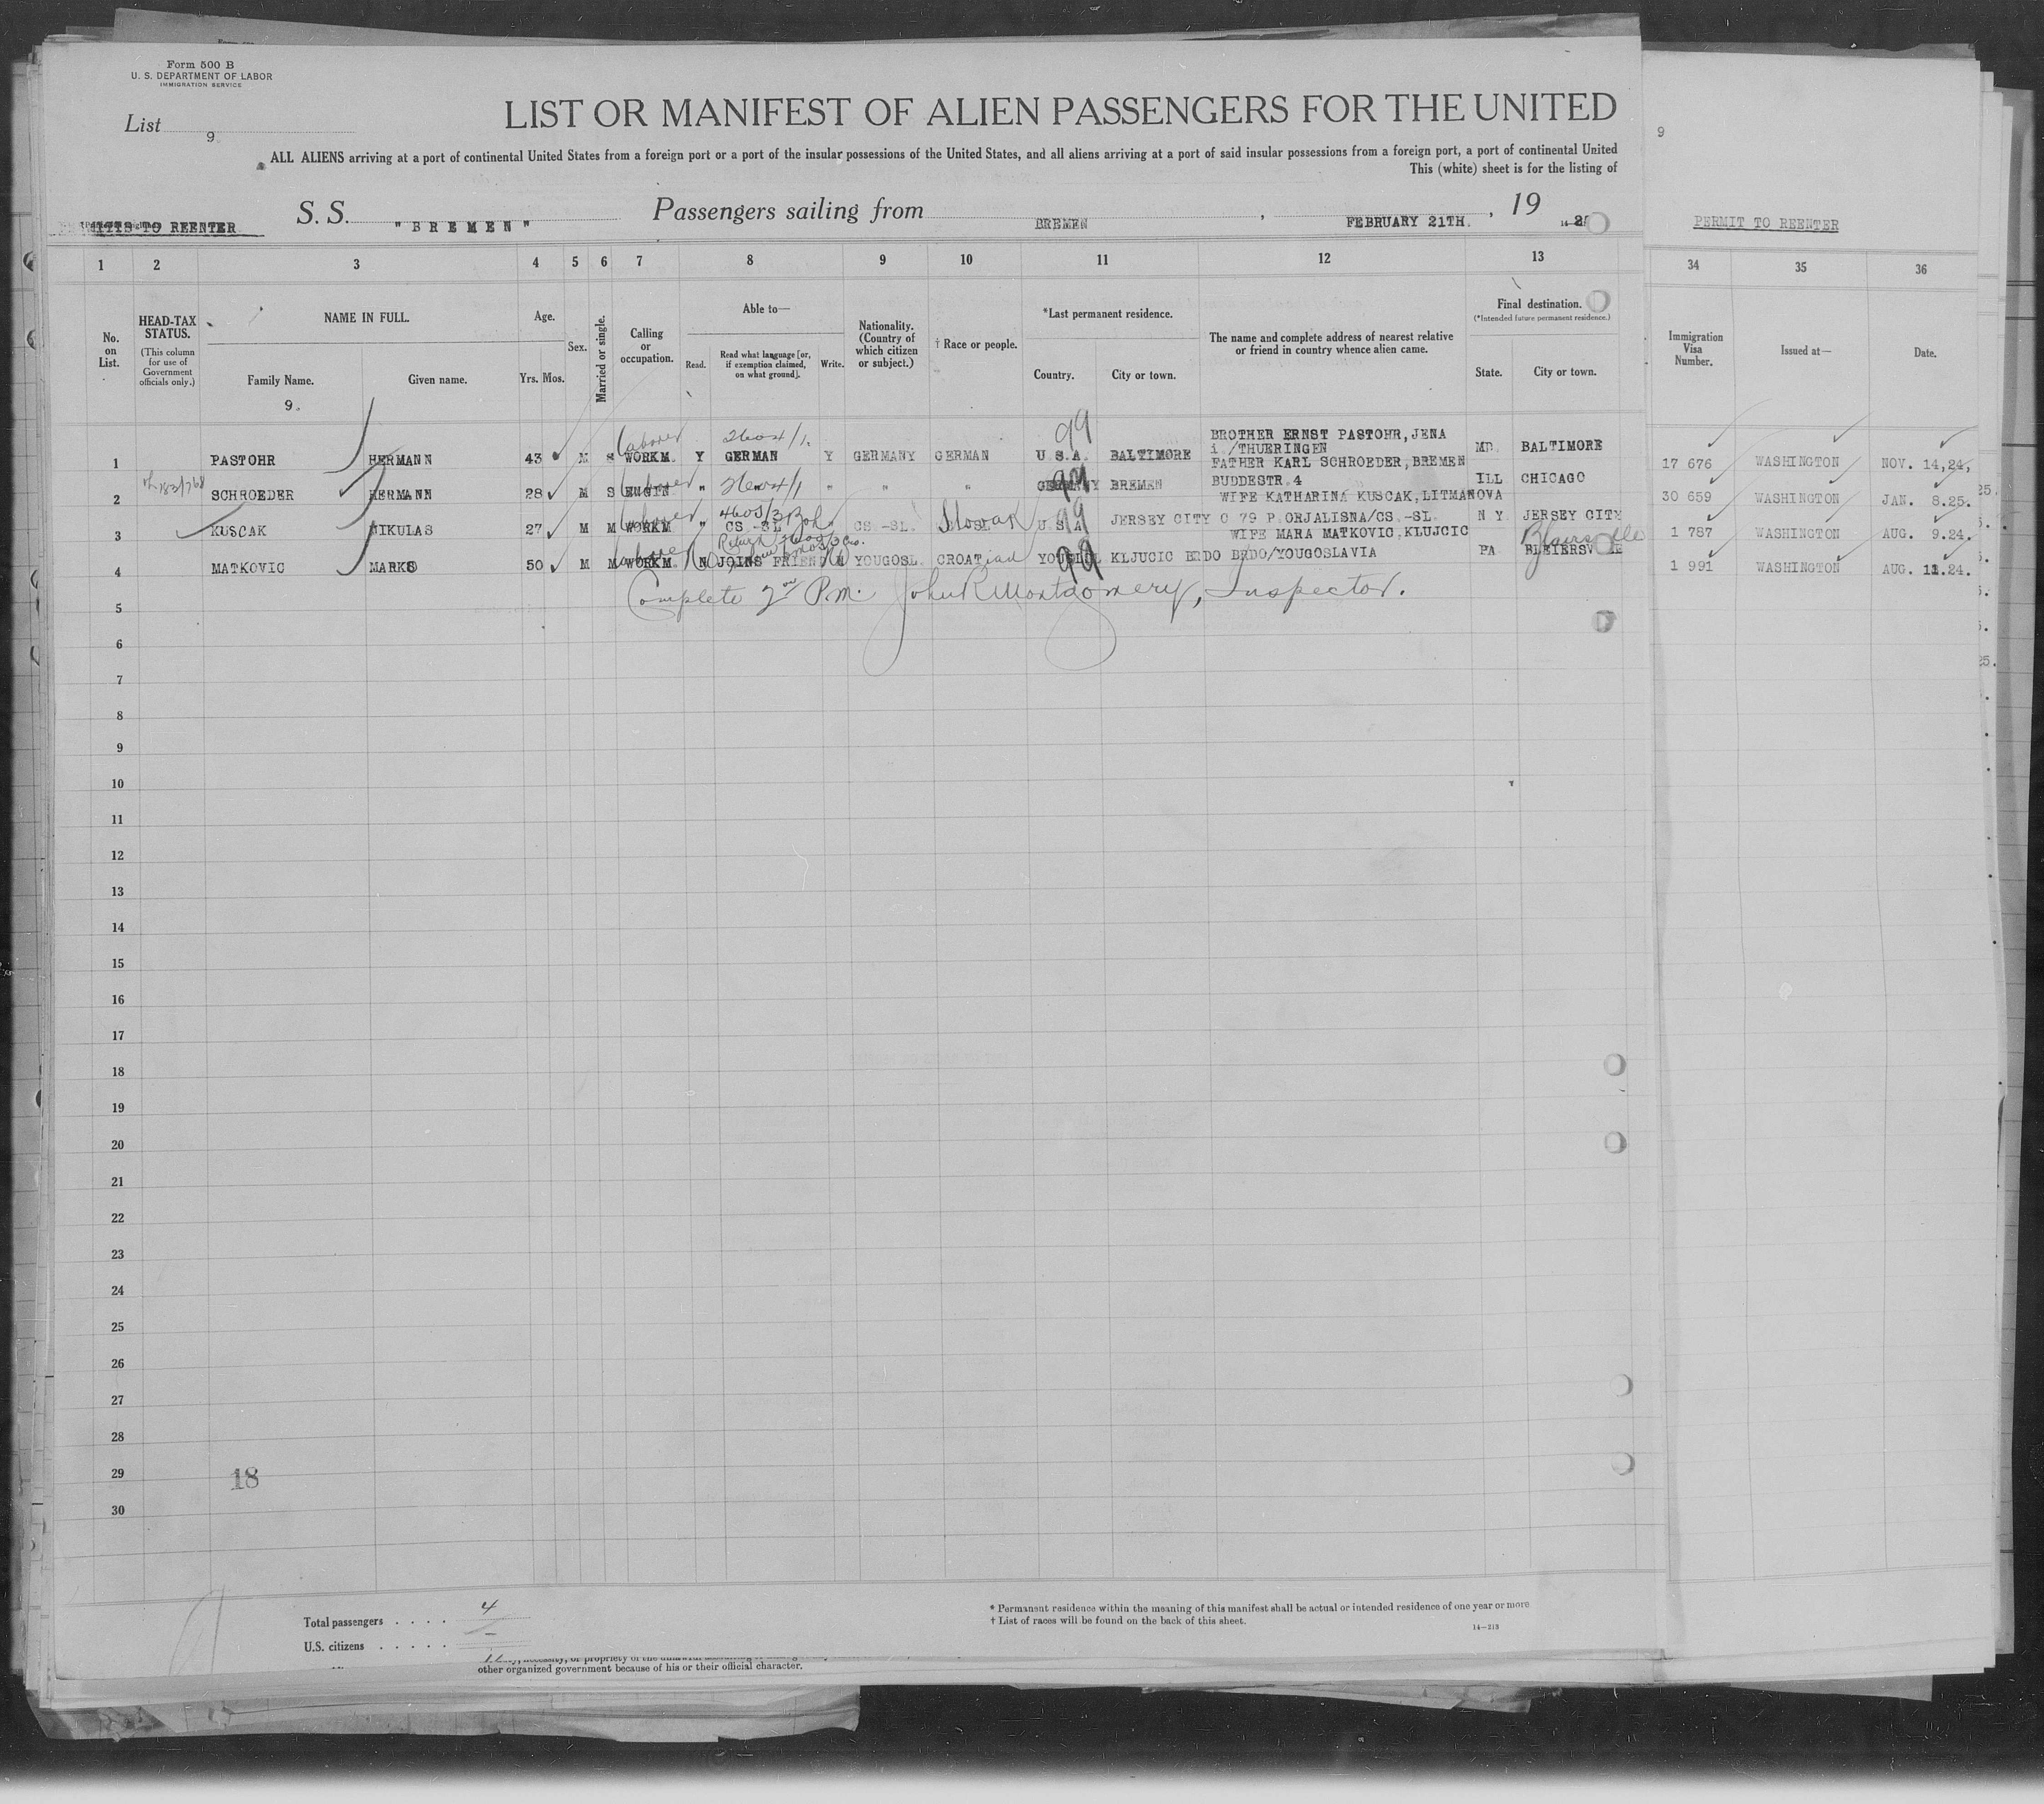 Form 500 B
U. S. DEPARTMENT OF LABOR
IMMIGRATION SERVICE
List 9
LIST OR MANIFEST OF ALIEN PASSENGERS FOR THE UNITED
ALL ALIENS arriving at a port of continental United States from a foreign port or a port of the insular possessions of the United States, and all aliens arriving at a port of said insular possessions from a foreign port, a port of continental United
This (white) sheet is for the listing of
TO REENTER S. S. "BREMEN" Passengers sailing from BREMEN, FEBRUARY 21TH., 19
1 2 3 4 5 6 7 8 9 10 11 12 13
No. on List.
HEAD-TAX STATUS. (This column for use of Government officials only.)
NAME IN FULL. Family Name. Given name.
9.
Age. Yrs. Mos.
Sex.
Married or single.
Calling or occupation.
Able to— Read. Read what language [or, if exemption claimed, on what ground]. Write.
Nationality. (Country of which citizen or subject.)
† Race or people.
*Last permanent residence. Country. City or town.
The name and complete address of nearest relative or friend in country whence alien came.
Final destination. (*Intended future permanent residence.) State. City or town.
1 PASTOHR HERMANN 43 M S WORKM. laborer Y GERMAN Y GERMANY GERMAN U.S.A. 99 BALTIMORE BROTHER ERNST PASTOHR, JENA i./THUERINGEN MD. BALTIMORE
2 SCHROEDER HERMANN 28 M S laborer " " " " " GERMANY 99 BREMEN FATHER KARL SCHROEDER, BREMEN BUDDESTR.4 ILL CHICAGO
3 KUSCAK NIKULAS 27 M M WORKM laborer " CS.-SL " CS.-SL. Slovak U.S.A 99 JERSEY CITY WIFE KATHARINA KUSCAK, LITMANOVA C 79 P.ORJALISNA/CS.-SL. N Y JERSEY CITY
4 MATKOVIC MARKO 50 M M WORKM laborer N JOINS FRIEND N YOUGOSL. CROATian 99 KLJUCIC BRDO WIFE MARA MATKOVIC, KLUJCIC BRDO/YOUGOSLAVIA PA Blairsville
Complete 2nd P.m. John R Montgomery, Inspector.
5
6
7
8
9
10
11
12
13
14
15
16
17
18
19
20
21
22
23
24
25
26
27
28
29
30
18
Total passengers . . . . 4
U.S. citizens . . . . . –
* Permanent residence within the meaning of this manifest shall be actual or intended residence of one year or more
† List of races will be found on the back of this sheet.
14—213
other organized government because of his or their official character.
9
PERMIT TO REENTER
34 35 36
Immigration Visa Number. Issued at— Date.
17 676 WASHINGTON NOV. 14,24,
30 659 WASHINGTON JAN. 8.25.
1 787 WASHINGTON AUG. 9.24.
1 991 WASHINGTON AUG. 11.24.